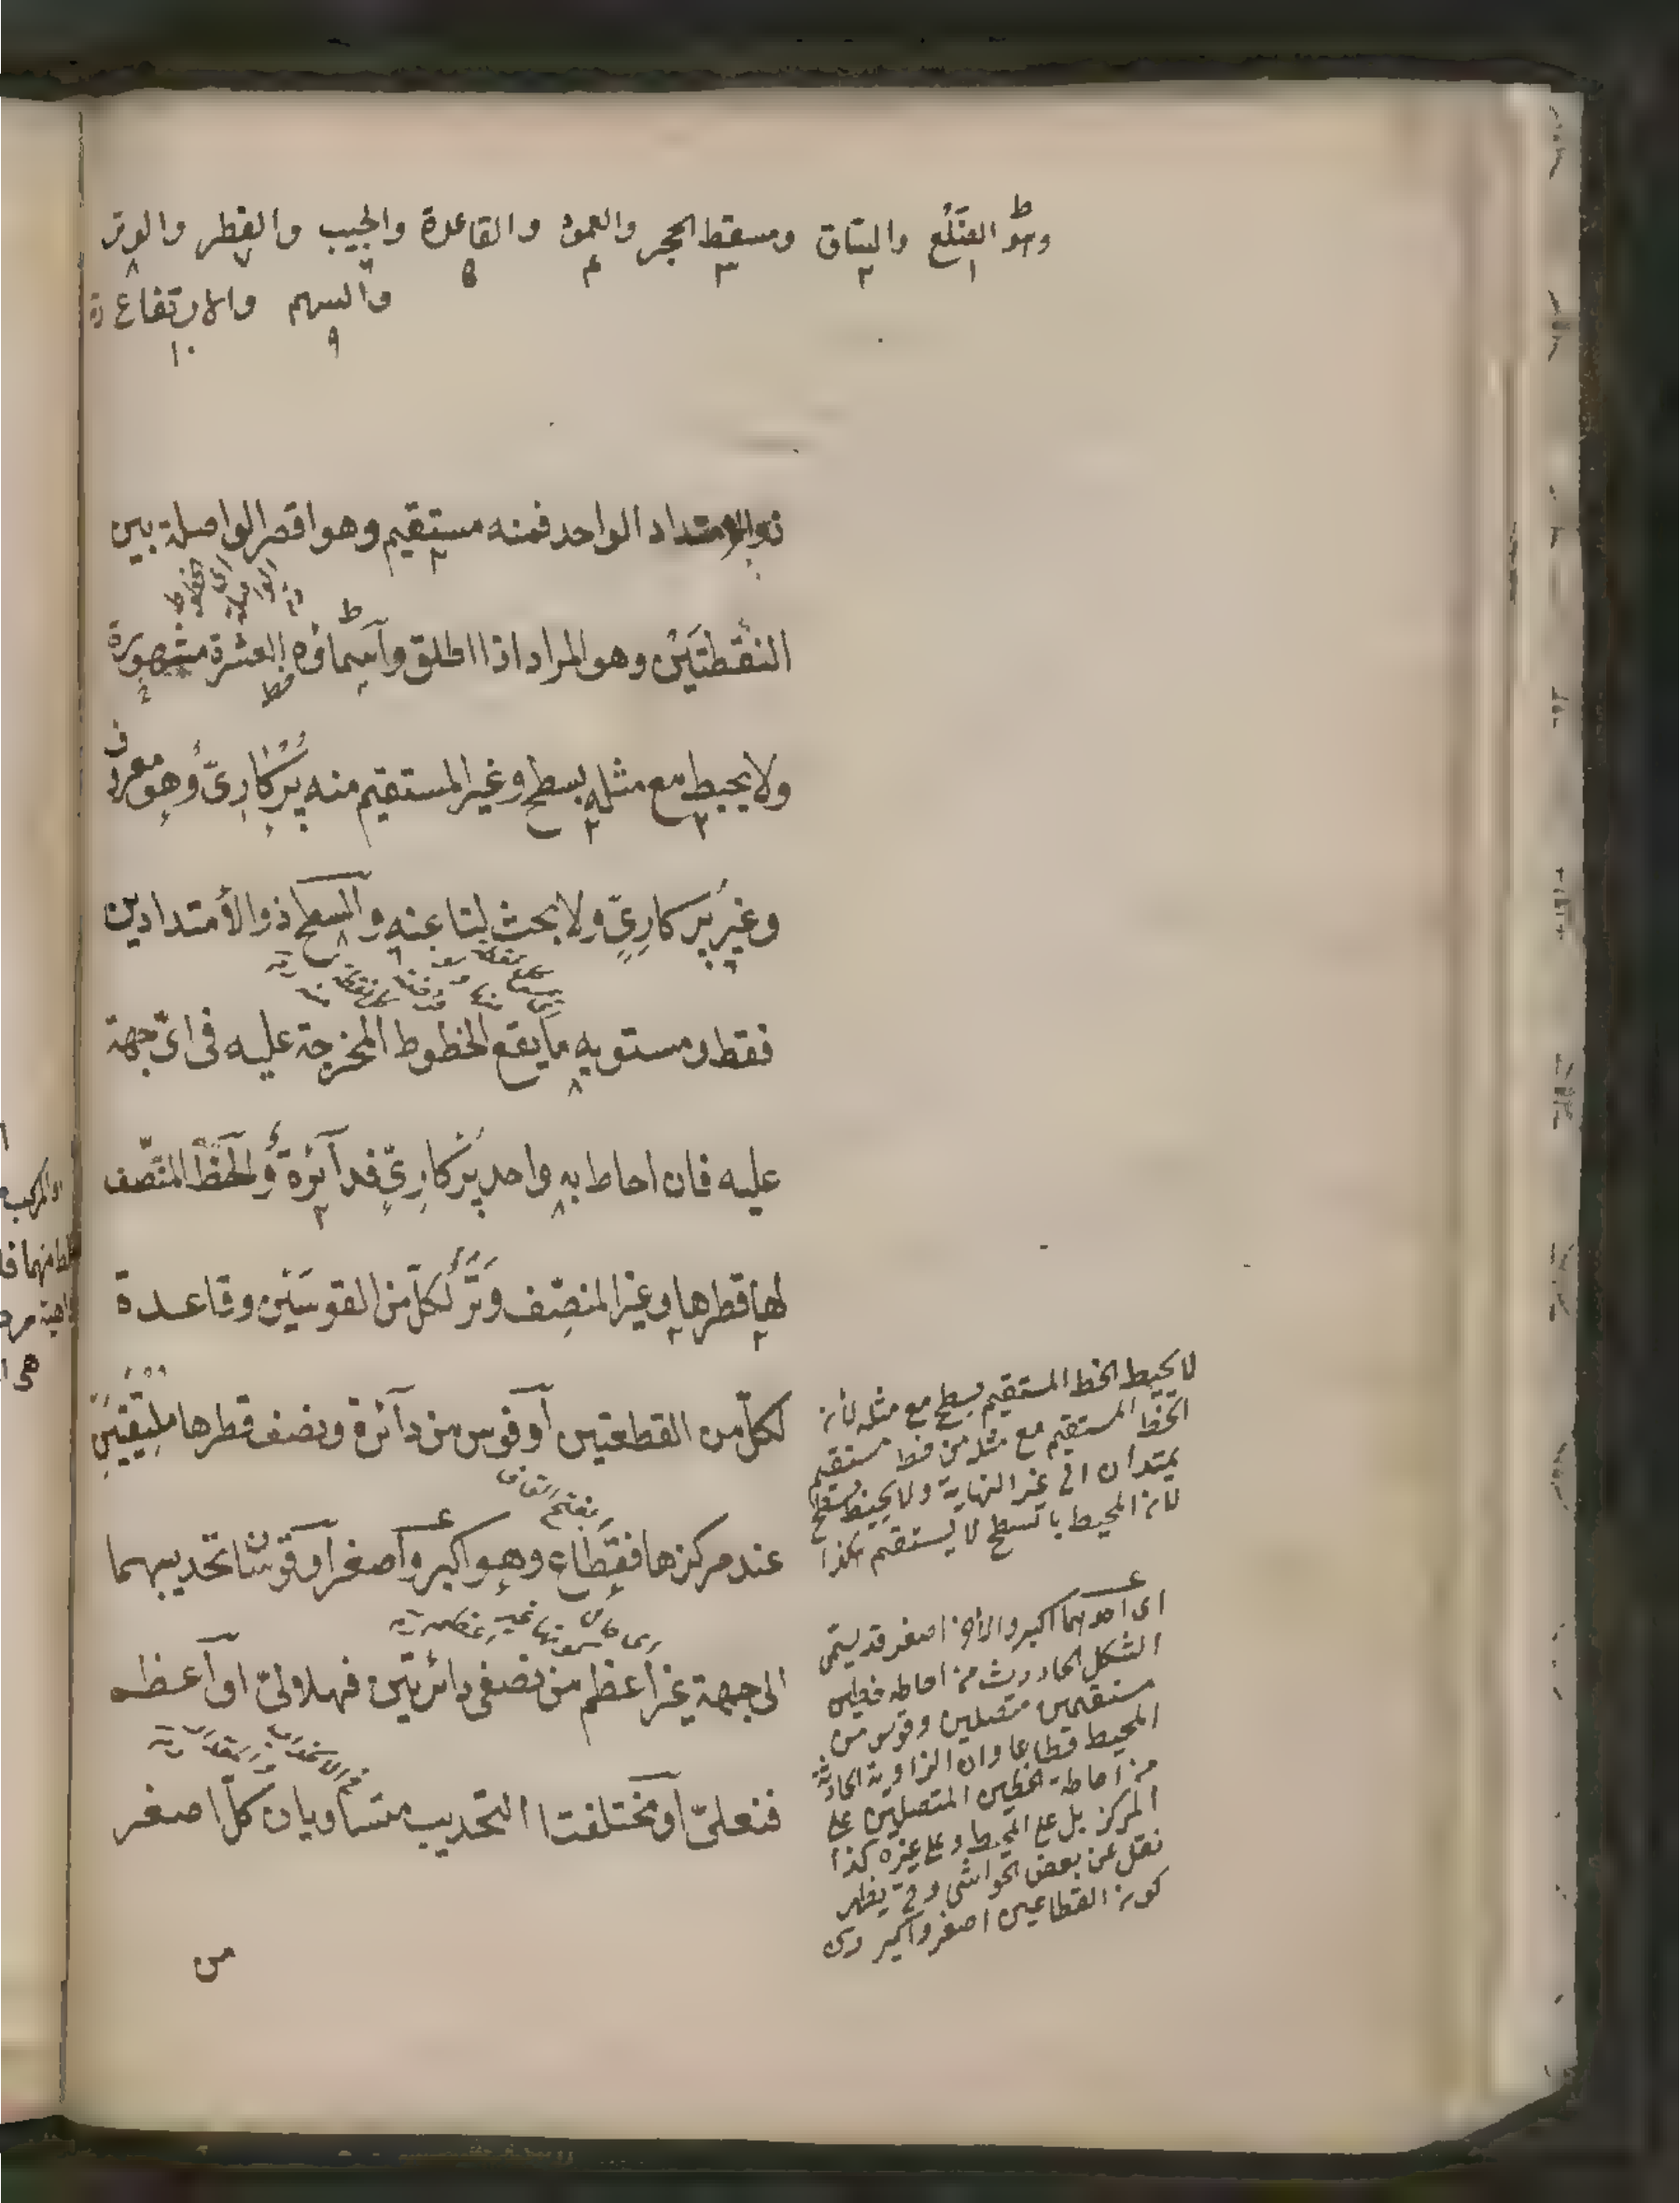 وهو الضلع والساق ومسقط الحجر والعمود والقاعدة والجيب والقطر والوتر
١ ٢ ٣ ٤ ٥ ٦ ٧ ٨
والسهم والارتفاع
٩ ١٠
ذو الامتداد الواحد فمنه مستقيم وهو اقصر الواصلة بين
النقطتين وهو المراد اذا اطلق واسماؤه العشرة مشهورة
ولا يحيط مع مثله بسطح وغير المستقيم منه پركاري وهو معروف
وغير پركاري ولا بحث لنا عنه والسطح ذو الامتدادين
فقط ومستويه ما يقع الخطوط المخرجة عليه في اي جهة
عليه فان احاط به واحد پركاري فدآئرة والخط المنصف
لها قطرها وغير المنصف وتر لكل من القوسين وقاعدة
لكل من القطعتين او قوس من دآئرة ونصف قطرها ملتقيين
بفتح القاف
عند مركزها فقطاع وهو اكبر واصغر او قوسان تحديبهما
الى جهة غير اعظم من نصفي دائرتين فهلالي او اعظم
فنعلي او مختلفتا التحديب متساويان كل اصغر
من
لا يحيط الخط المستقيم بسطح مع مثله لانه
الخط المستقيم مع مثله من خط مستقيم
يمتدان الى غير النهاية ولا يحيط بسطح
لانه المحيط بالسطح لا يستقيم هكذا
اى احدهما اكبر والاخر اصغر قد يسمى
الشكل الحادث من احاطه خطين
مستقيمين متصلين وقوس من
المحيط قطاعا وان الزاوية الحادثة
من احاطة الخطين المتصلين على
المركز بل على المحيط وعلى غيره كذا
نقل عن بعض الحواشى و يظهر
كونه القطاعين اصغر واكبر